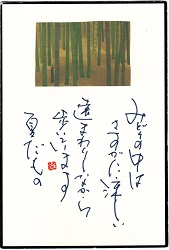 みどりの中は
さすがに涼しい
遠まわりしながら
歩いています
夏だもの